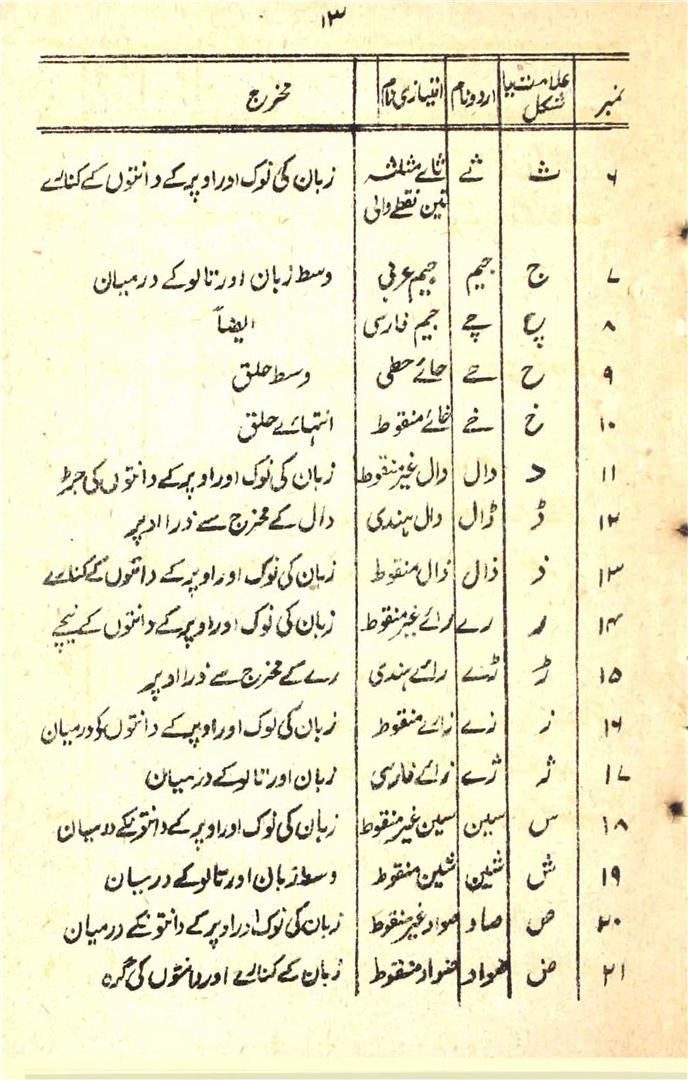 ۱۳
نمبر علامت یا شکل اردو نام امتیازی نام مخرج
۶ ث ثے ثائے مثلثہ زبان کی نوک اور اوپر کے دانتوں کے کنارے
تین نقطے والی
۷ ج جیم جیم عربی وسط زبان اور تالو کے درمیان
۸ چ چے جیم فارسی ایضاً
۹ ح حے حائے حطی وسط حلق
۱۰ خ خے خائے منقوط انتہائے حلق
۱۱ د دال دال غیر منقوط زبان کی نوک اور اوپر کے دانتوں کی جڑ
۱۲ ڈ ڈال دال ہندی دال کے مخرج سے ذرا اوپر
۱۳ ذ ذال ذال منقوط زبان کی نوک اور اوپر کے دانتوں کے کنارے
۱۴ ر رے رائے غیر منقوط زبان کی نوک اور اوپر کے دانتوں کے نیچے
۱۵ ڑ ڑے رائے ہندی رے کے مخرج سے ذرا اوپر
۱۶ ز زے زائے منقوط زبان کی نوک اور اوپر کے دانتوں کو درمیان
۱۷ ژ ژے زائے فارسی زبان اور تالو کے درمیان
۱۸ س سین سین غیر منقوط زبان کی نوک اور اوپر کے دانتوں کے درمیان
۱۹ ش شین شین منقوط وسط زبان اور تالو کے درمیان
۲۰ ص صاد صواد غیر منقوط زبان کی نوک اور اوپر کے دانتوں کے درمیان
۲۱ ض ضواد ضواد منقوط زبان کے کنارے اور دانتوں کی گرہ